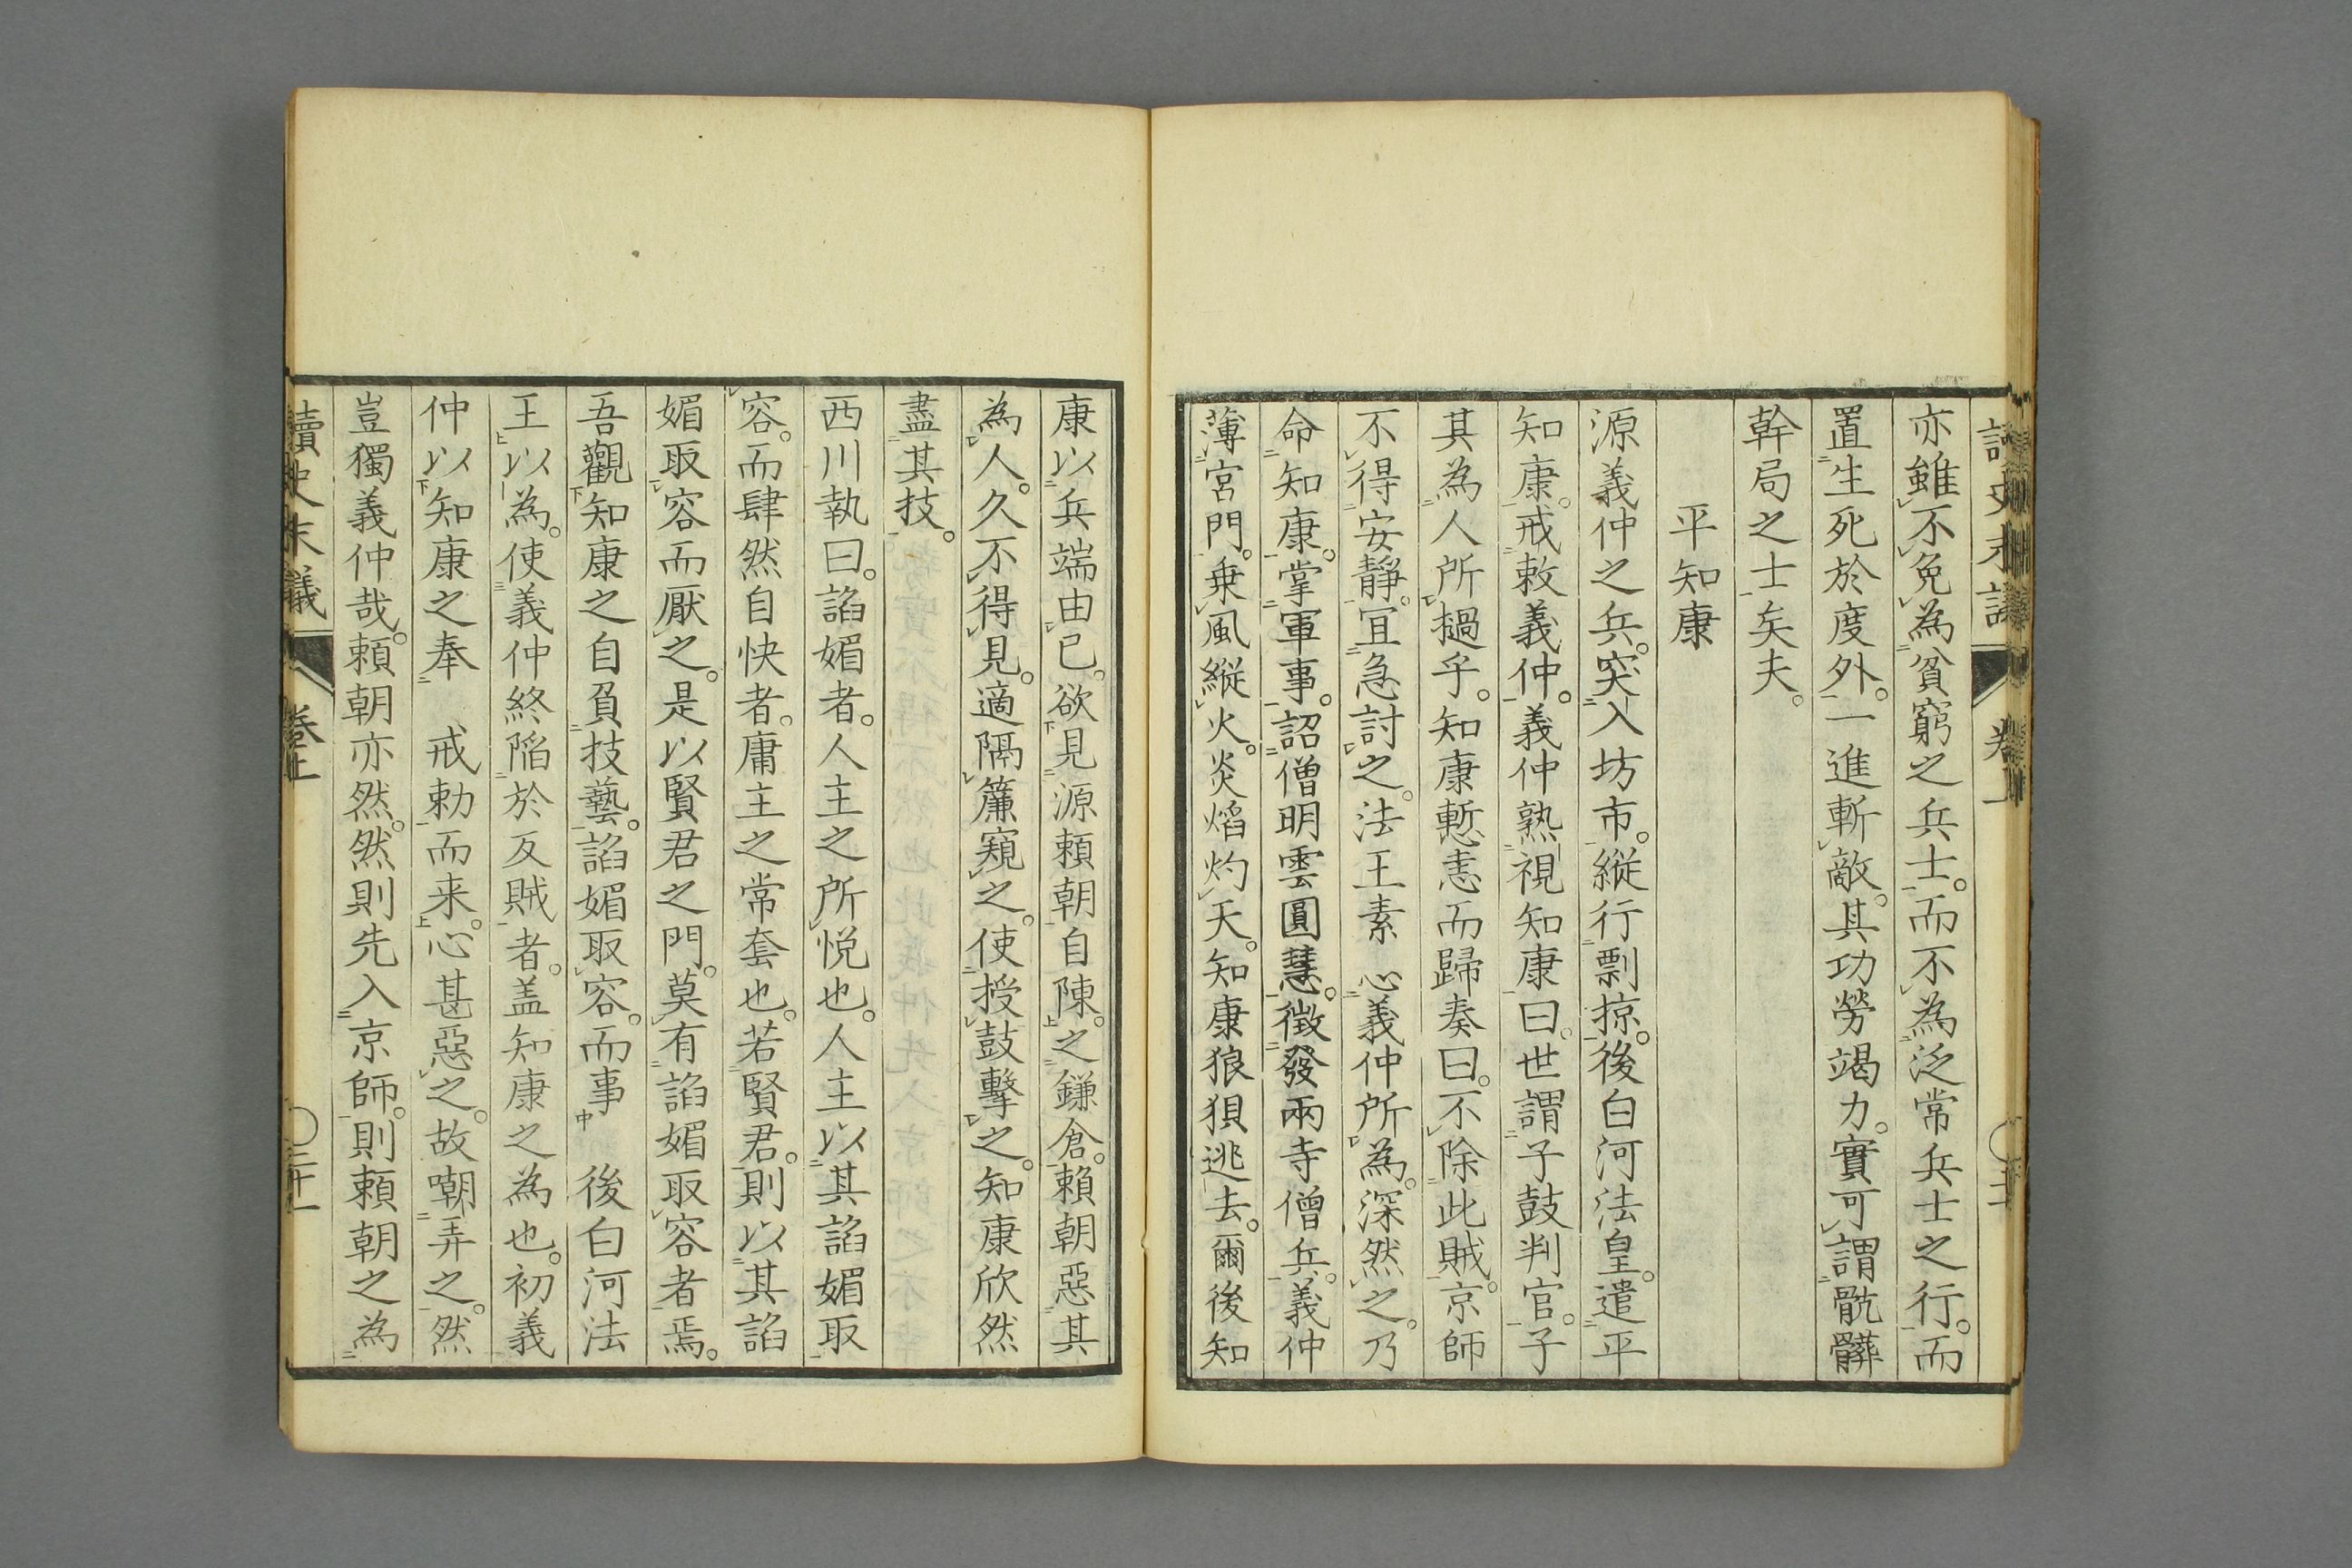 亦雖不免為貧窮之兵士。而不為泛常兵士之行。而
置生死於度外。一進斬敵。其功勞竭力。實可謂骯髒
幹局之士矣夫。
平知康
源義仲之兵。突入坊市。縱行剽掠。後白河法皇。遣平
知康。戒敕義仲。義仲熟視知康曰。世謂子鼓判官。子
其為人所撾乎。知康慙恚而歸奏曰。不除此賊。京師
不得安靜。冝急討之。法王素 心義仲所為。深然之。乃
命知康。掌軍事。詔僧明雲圓慧。徵發兩寺僧兵。義仲
薄宮門。乗風縱火。炎焰灼天。知康狼狽逃去。爾後知
康以兵端由已。欲見源頼朝自陳。之鎌倉。賴朝惡其
為人。久不得見。適隔簾窺之。使授鼓擊之。知康欣然
盡其技。
西川執曰。諂媚者。人主之所悦也。人主以其諂媚取
容。而肆然自快者。庸主之常套也。若賢君。則以其諂
媚取容而厭之。是以賢君之門。莫有諂媚取容者焉。
吾觀知康之自負技藝。諂媚取容。而事 後白河法
王以為。使義仲終陷於反賊者。盖知康之為也。初義
仲以知康之奉 戒勅而来。心甚惡之。故嘲弄之。然
豈獨義仲哉。頼朝亦然。然則先入京師。則頼朝之為
讀史末議 卷上 〇三十一